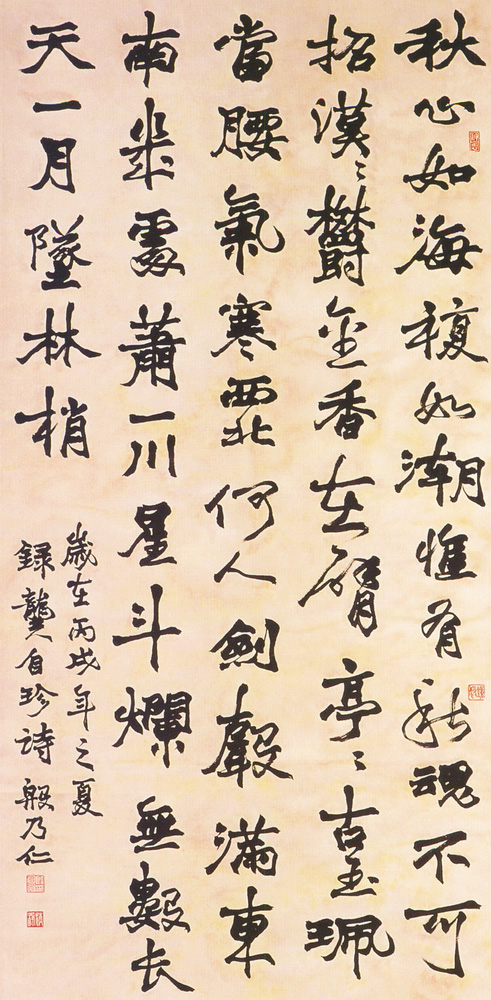 秋心如海復如潮惟有秋魂不可
招漠〻鬱金香在臂亭〻古玉珮
當腰氣寒西北何人劍聲滿東
南幾處蕭一川星斗爛無數长
天一月墜林梢
歲在丙戌年之夏
録龔自珍詩殷乃仁